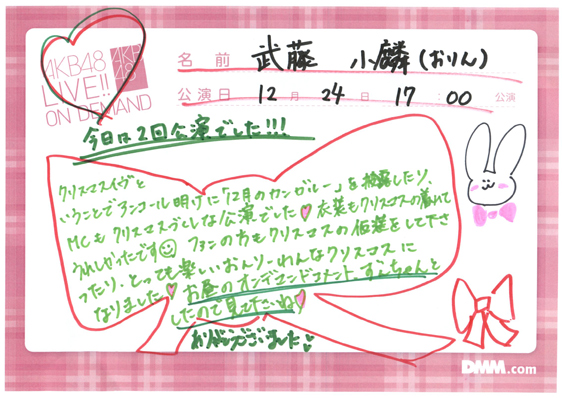 AKB48
LIVE!!
ON DEMAND
AKB
48
名前 武藤 小麟(おりん)
公演日 12月24日 17:00公演
今日は2回公演でした!!!
クリスマスイヴと
いうことでアンコール明けに「12月のカンガルー」を披露したり、
MCもクリスマスづくしな公演でした 衣装もクリスマスの着れて
うれしかったです ファンの方もクリスマスの仮装をして下さ
ったり、とっても楽しいおんりーわんなクリスマスに
なりました お昼のオンデマンドコメント、ずんちゃんと
したので見て下さいね
ありがとうございました
DMM.com